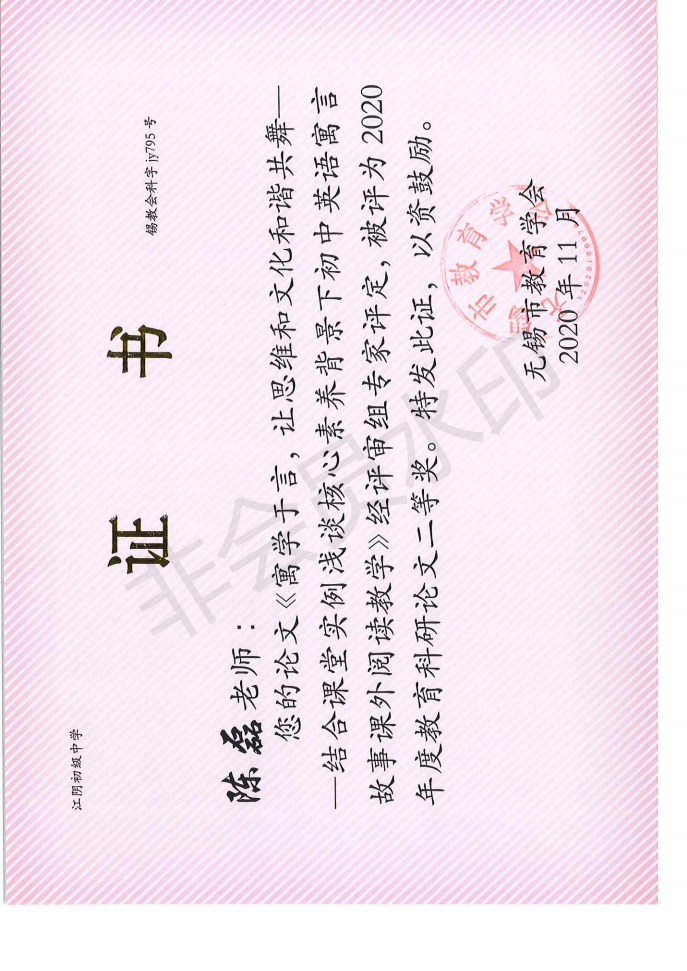 江阴初级中学
锡教会科字jy795号
证书
陈磊老师：
您的论文《寓学于言，让思维和文化和谐共舞—
—结合课堂实例浅谈核心素养背景下初中英语寓言
故事课外阅读教学》经评审组专家评定，被评为2020
年度教育科研论文二等奖。特发此证，以资鼓励。
无锡市教育学会
2020年11月
无锡市教育学会
非会员水印